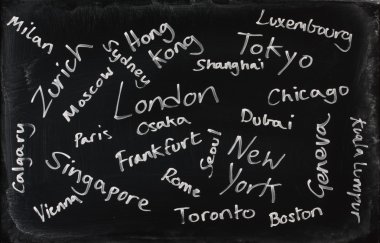 Milan
Zurich
Moscow
Sydney
Hong
Kong
Luxembourg
Tokyo
Shanghai
London
Chicago
Osaka
Dubai
Paris
Frankfurt
Seoul
New
York
Geneva
Kuala Lumpur
Calgary
Singapore
Vienna
Rome
Toronto
Boston